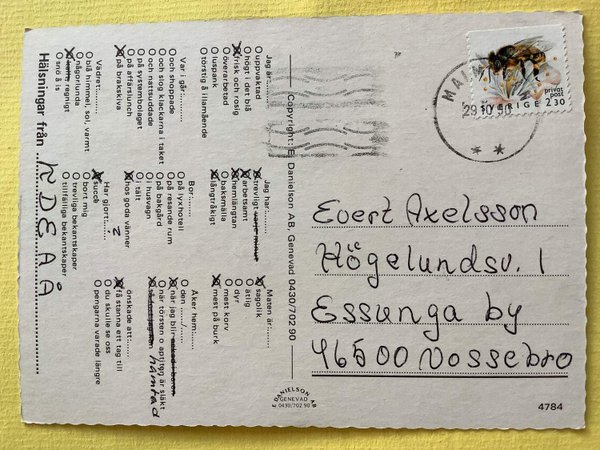 Jag är:......
uppvaktad
högt i det blå
frisk och rosig
överarbetad
luspank
törstig å ilamående
Jag har:......
trevligt varje minut
arbetsamt
hemlängtan
baksmälla
långtråkigt
Maten är:......
sagolik
ätlig
dyr
mest korv
mest på burk
Var i går:......
och shoppade
och slog klackarna i taket
och nattsuddade
på affärslunch
på systembolaget
på brakskiva
Bor......
på lyxhotell
på resande rum
på bakgård
i husvagn
i tält
hos goda vänner
2
Åker hem......
den ....../......
när jag blir
hämtad
när törsten o aptiten är släkt
Vädret:......
blå himmel, sol, varmt
någorlunda
regnigt
snö å is
Har gjort:......
succé
bort mig
trevliga bekantskaper
tillfälliga bekantskaper
önskade att:......
få stanna ett tag till
du skulle se oss
pengarna varade längre
Hälsningar från
K D E A Å
Copyright: E. Danielson AB, Genevad 0430/702 90
E DANIELSON AB
GENEVAD
0430/702 90
29 10 90
privat
post
SVERIGE 2.30
Evert Axelsson
Högelundsv. 1
Essunga by
46500 Nossebro
4784